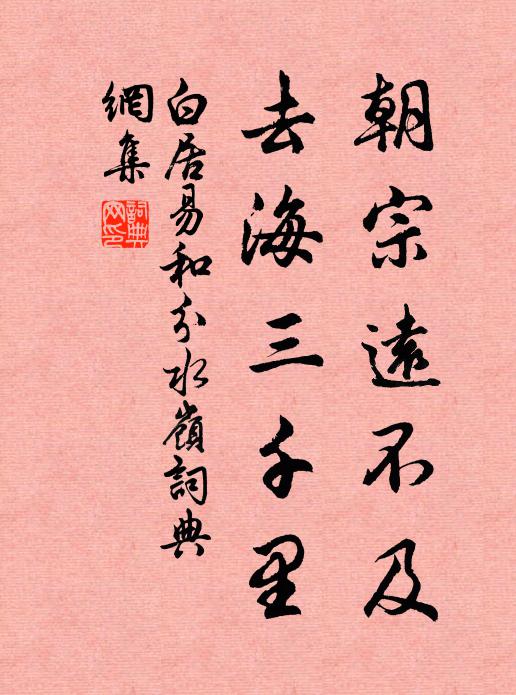 朝宗遠不及
去海三千里
白居易和分水嶺詞典
網集
詞典網印